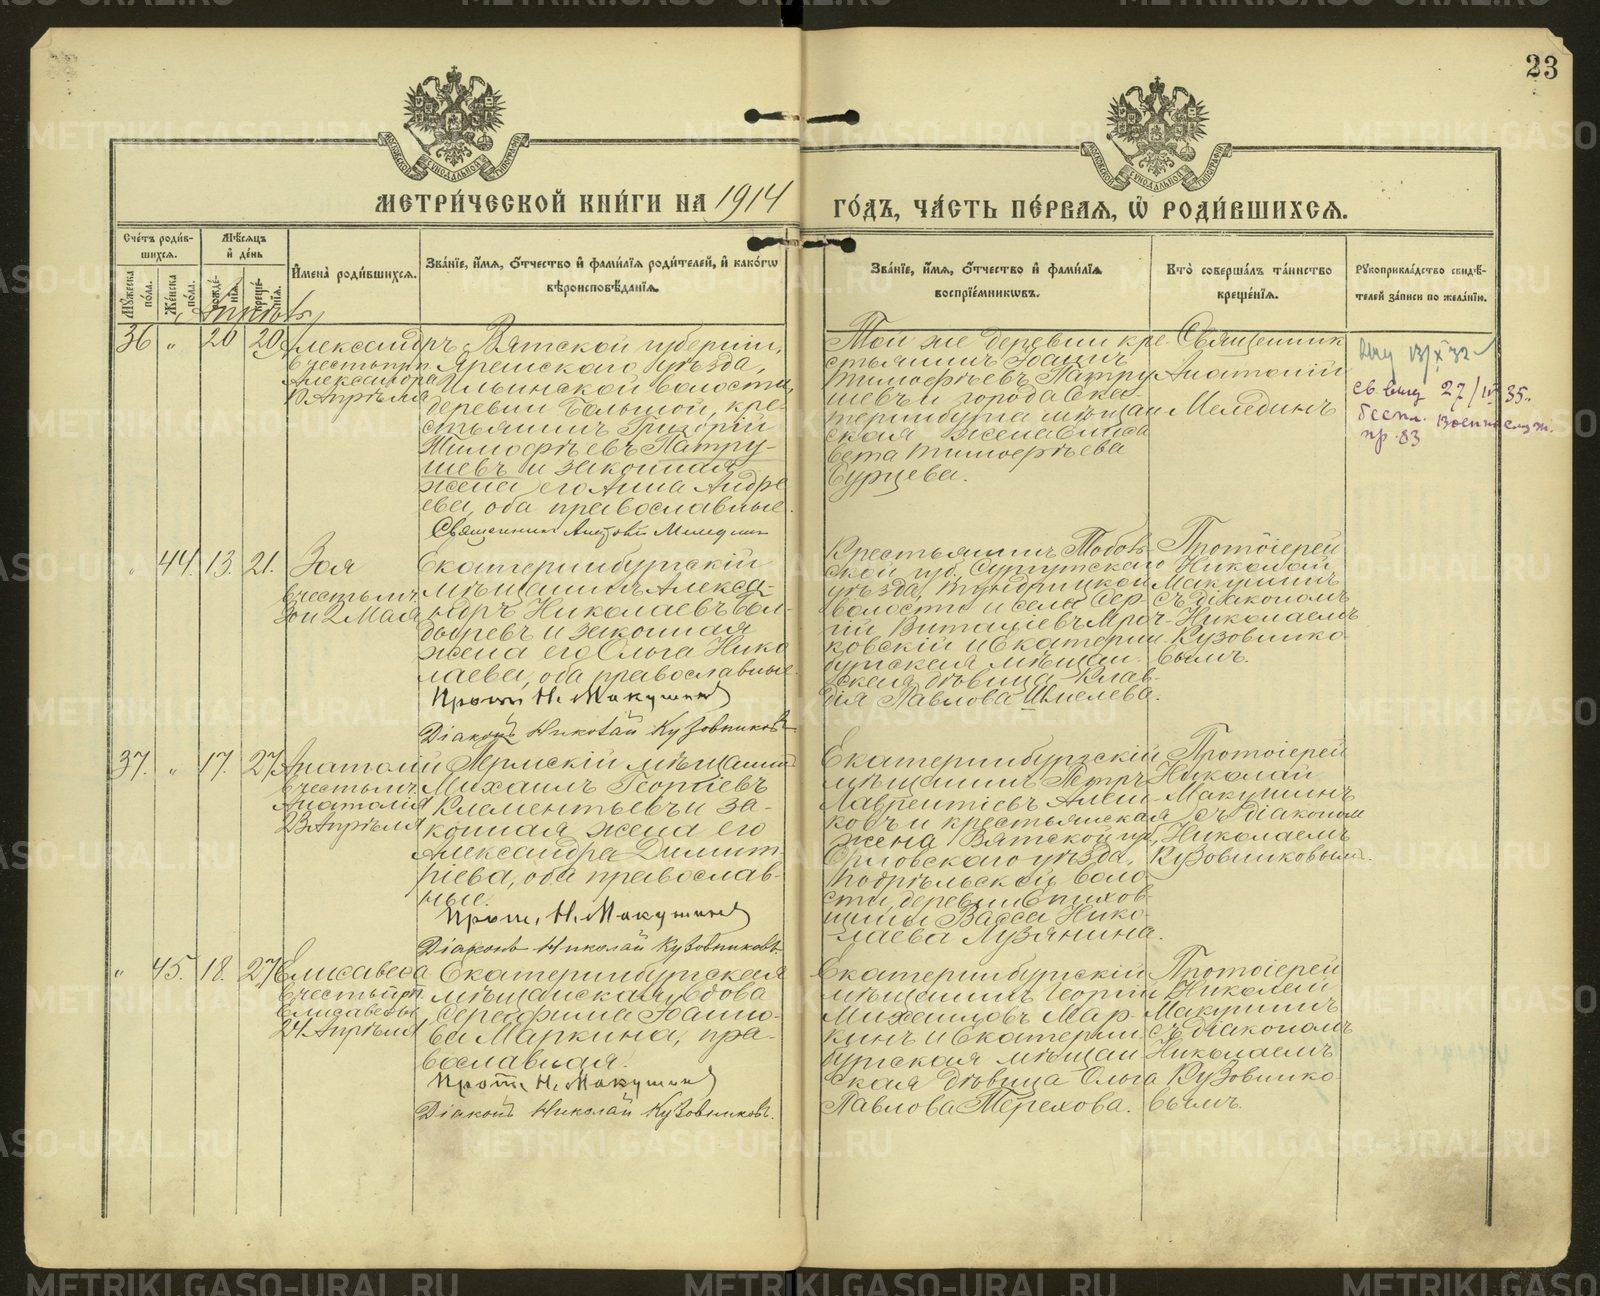 23
МЕТРИ́ЧЕСКОЙ КНИ́ГИ НА 1914
ГО́ДЪ, ЧА́СТЬ ПЕ́РВАЯ, Ѡ҆ РОДИ́ВШИХСЯ.
Сче́тъ роди́в-
шихся.
Мꙋ́жеска по́ла.
Же́нска по́ла.
Мѣ́сяцъ
и҆ де́нь
рожде́-
нїѧ.
креще́-
нїѧ.
И҆мена̀ роди́вшихся.
Зва́нїе, и҆́мя, ѻ҆́тчество и҆ фами́лїя роди́телей, и҆ како́гѡ
вѣроисповѣ́данїя.
Зва́нїе, и҆́мя, ѻ҆́тчество и҆ фами́лїя
воспрїе́мникѡвъ.
Кто̀ соверша́лъ та́инство
креще́нїя.
Рꙋкоприкла́дство свидѣ́-
телей за́писи по жела́нїю.
Апрѣль
36 " 20 20 Александръ
в честь прп.
Александра
Вятской губерніи,
Яренскаго уѣзда,
Ильинской волости,
деревни Большой, кре-
стьянинъ Григорій
Тимофѣевъ Патру-
шевъ и законная
жена его Анна Андре
ева, оба православные.
Священникъ Анатолій Мелединъ
Той же деревни кре
стьянинъ Іоаннъ
Тимофѣевъ Патру
шевъ и города Ека-
теринбурга мѣщан
ская жена Елиса
вета Тимофѣева
Бурцева.
Священникъ
Анатолій
Мелединъ
27/IV 35.
" 44. 13. 21. Зоя
в честь мч.
Зои 2 Мая
Екатеринбургскій
мѣщанинъ Алекса-
ндръ Николаевъ Бол-
дыревъ и законная
жена его Ольга Нико
лаева, оба православные.
Прот. Н. Макушинъ
Діаконъ Николай Кузовниковъ
Крестьянинъ Тоболь-
ской губ. Сургутскаго
уѣзда, Тундринской
волости и села Сер-
гій Виталіевъ Мроч-
ковскій и Екатерин-
бургская мѣщан-
ская дѣвица Клав-
дія Павлова Шмелева.
Протоіерей
Николай
Макушинъ
съ діакономъ
Николаемъ
Кузовнико
вымъ.
37. " 17. 27. Анатолій
в честь мч.
Анатолія
23 Апрѣля
Пермскій мѣщанинъ
Михаилъ Георгіевъ
Клементьевъ и за-
конная жена его
Александра Димит-
ріева, оба православ-
ные.
Прот. Н. Макушинъ
Діаконъ Николай Кузовниковъ
Екатеринбургскій
мѣщанинъ Петръ
Лаврентіевъ
и крестьянская
жена Вятской губ,
Орловскаго уѣзда,
воло
сти, деревни Епихов-
щины Васса Нико-
лаева Лузянина.
Протоіерей
Николай
Макушинъ
съ діакономъ
Николаемъ
Кузовниковымъ.
" 45. 18. 27. Елисавета
в честь прп.
Елисаветы
24 Апрѣля
Екатеринбургская
мѣщанская вдова
Серафима Іоанно-
ва Маркина, пра-
вославная.
Прот. Н. Макушинъ
Діаконъ Николай Кузовниковъ.
Екатеринбургскій
мѣщанинъ Георгій
Михаиловъ Мар-
кинъ и Екатерин-
бургская мѣщан
ская дѣвица Ольга
Павлова Терехова.
Протоіерей
Николай
Макушинъ
съ діакономъ
Николаемъ
Кузовнико
вымъ.
METRIKI.GASO-URAL.RU